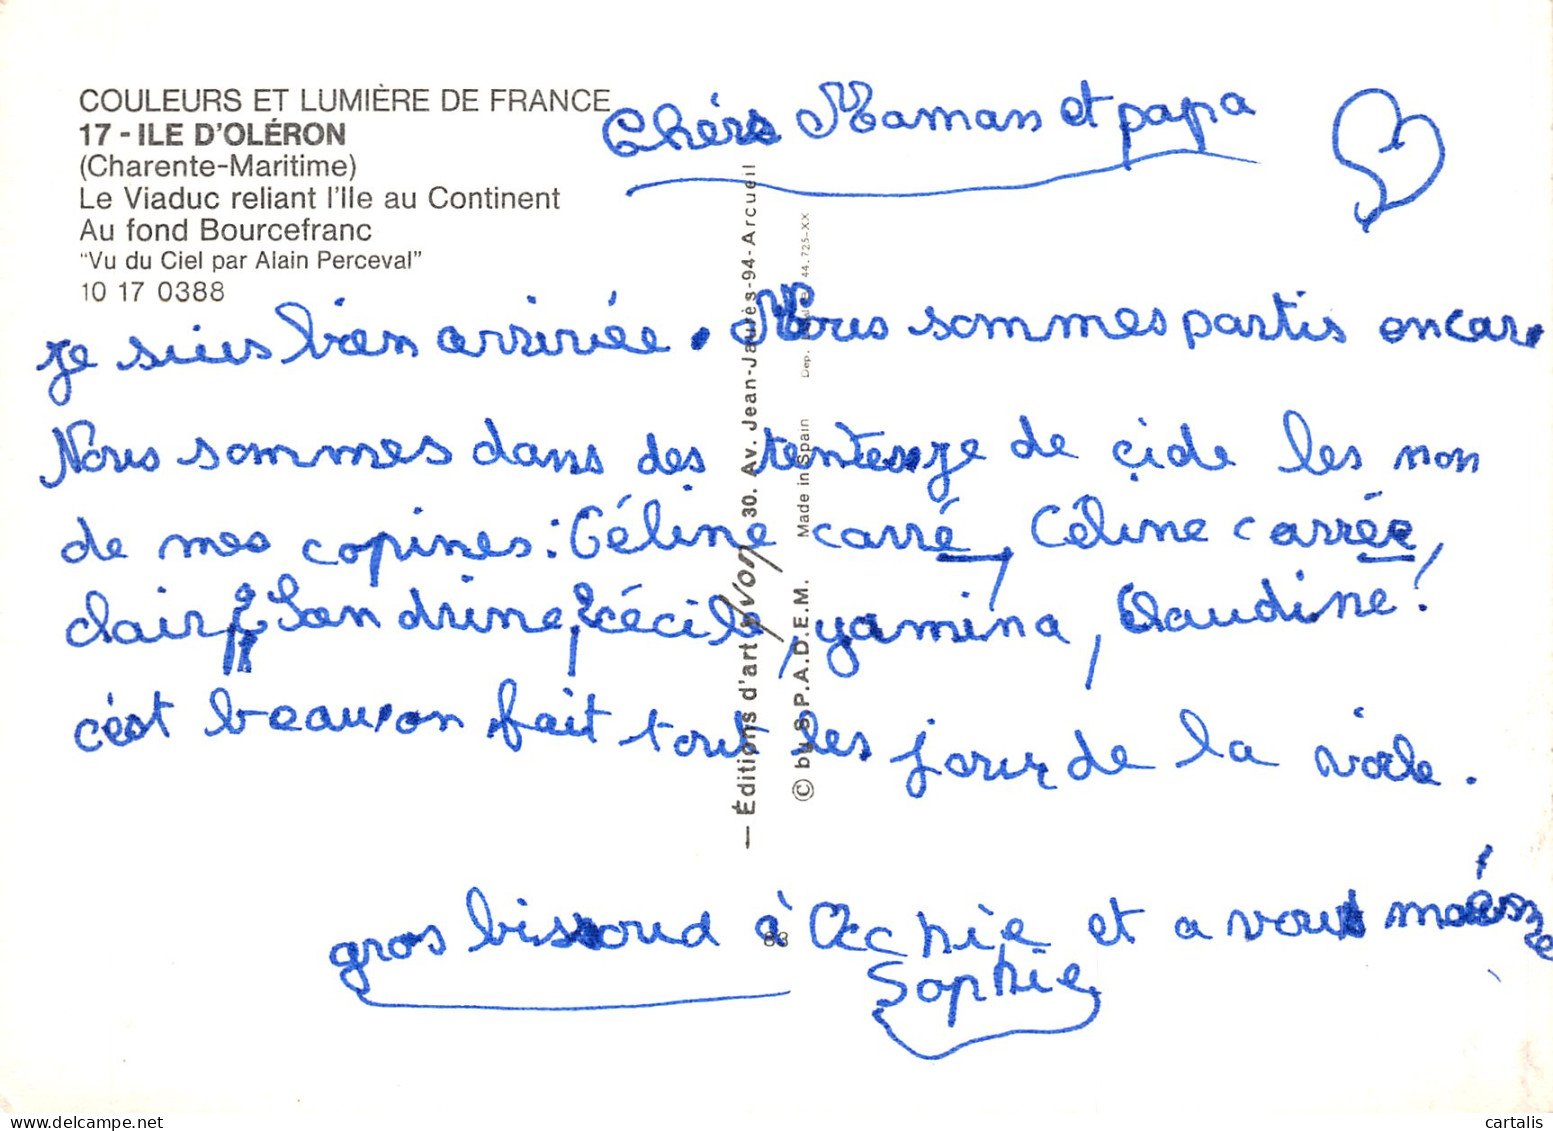 COULEURS ET LUMIÈRE DE FRANCE
17 - ILE D'OLÉRON
(Charente-Maritime)
Le Viaduc reliant l'Ile au Continent
Au fond Bourcefranc
"Vu du Ciel par Alain Perceval"
10 17 0388
Chérs Maman et papa
je suis bien arrivée. Nous sommes partis en car.
Nous sommes dans des tentes, je de çide les non
de mes copines : Céline carré, Céline carrée,
clair, Sandrine, cécile, yamina, Claudine !
c'ést beau, on fait tout les jour de la voile.
gros bissoud à et a vous même
Sophie
— Éditions d'art yvon 30. Av. Jean-Jaurès-94-Arcueil
© by S.P.A.D.E.M. Made in Spain Dep. 44.725-XX
88
cartalis